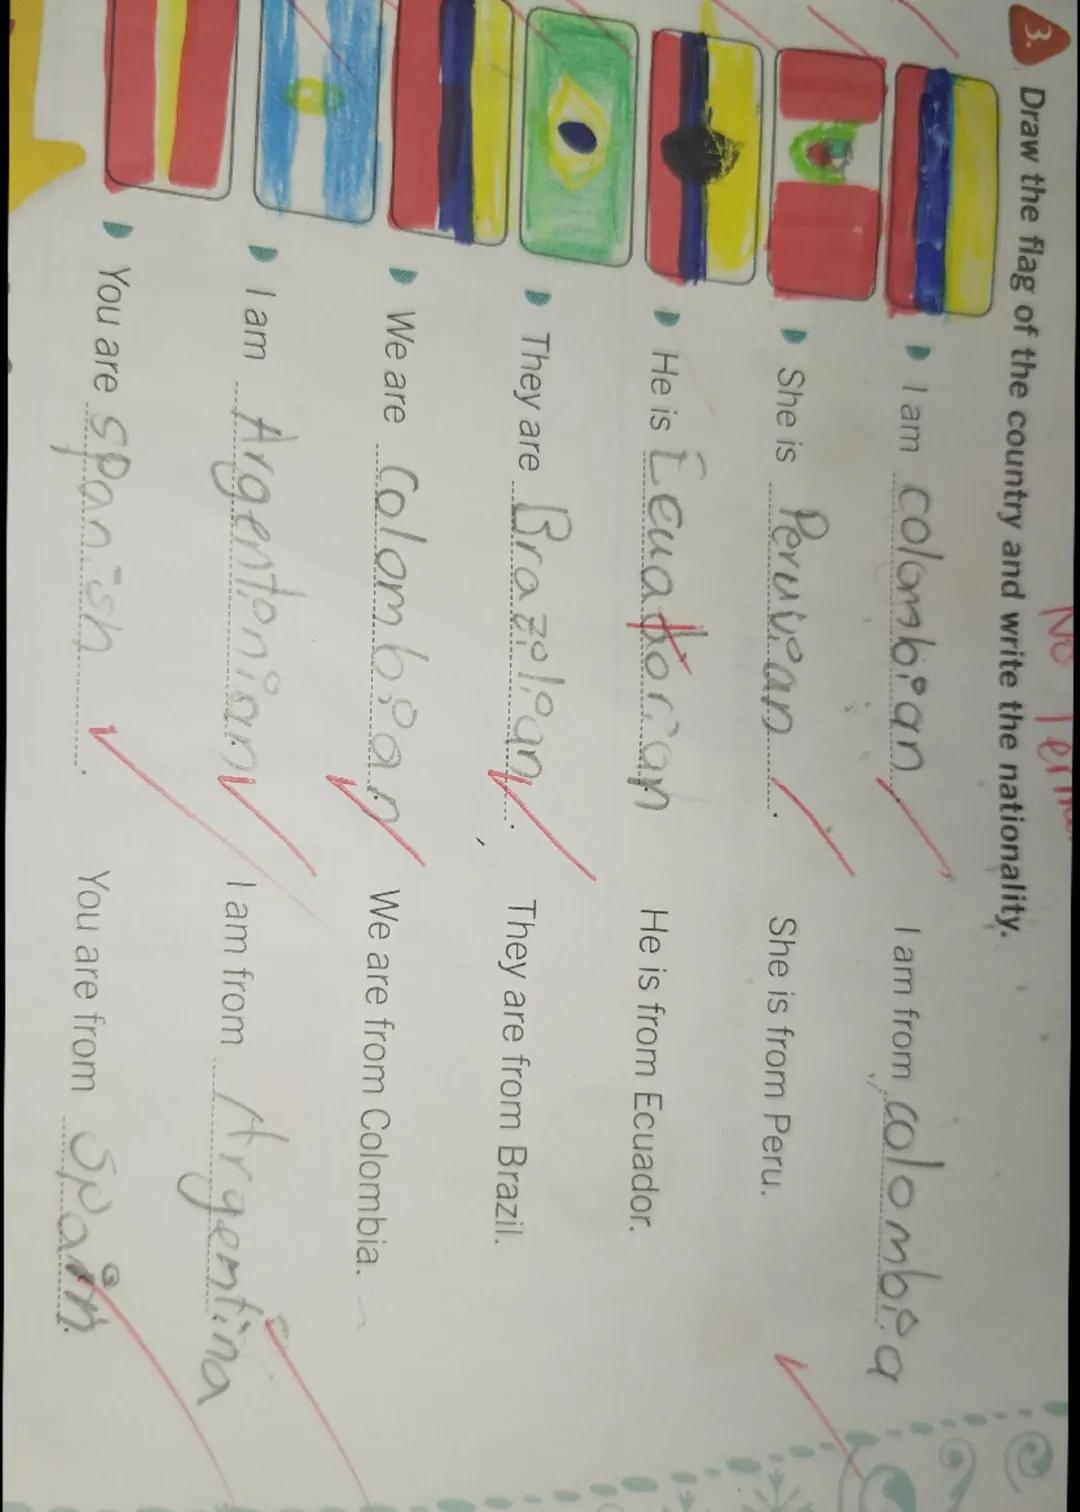 3. Draw the flag of the country and write the nationality.
I am colombian. I am from colombia
She is Peruvian. She is from Peru.
He is Ecuatorian He is from Ecuador.
They are Brazilian. They are from Brazil.
We are Colombian We are from Colombia.
I am Argentenian I am from Argentina
You are spanish. You are from Spain.